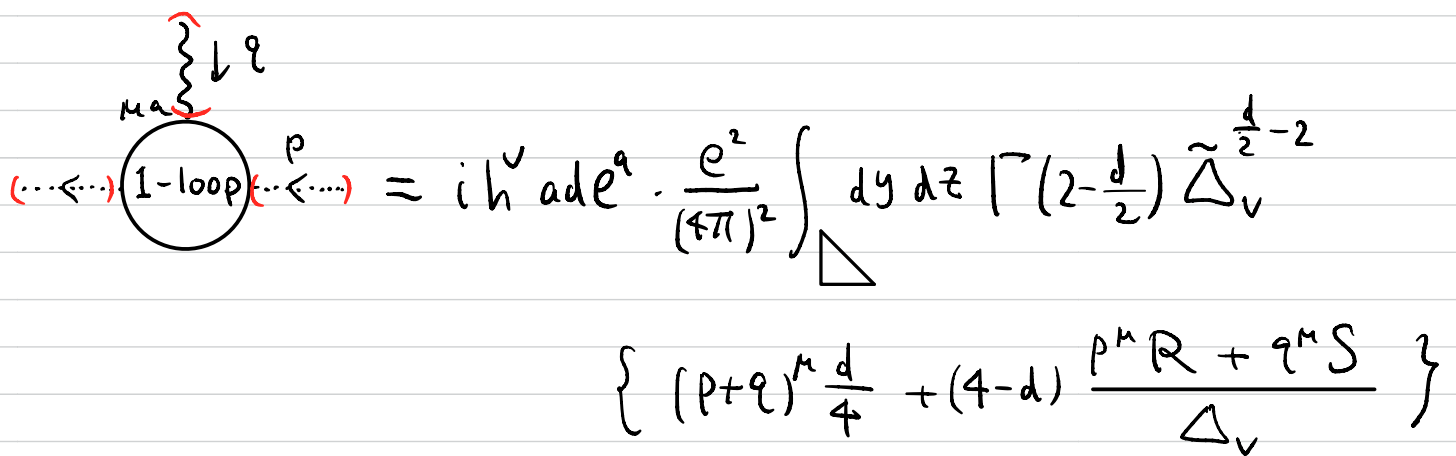 ↓ q
μa
p
(···<···) 1-loop (···<···) = i h^∨ ad e^a · e²/(4π)² ∫ dy dz Γ(2-d/2) Δ̃_V^{d/2-2}
{ (p+q)^μ d/4 + (4-d) (p^μ R + q^μ S)/Δ_V }